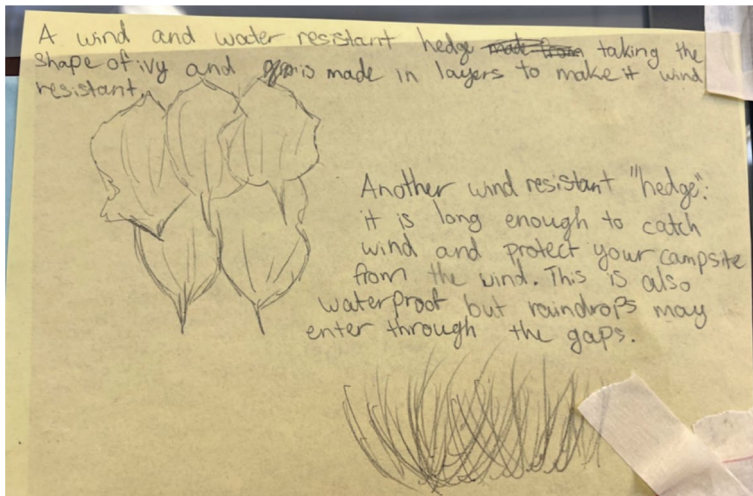 A wind and water resistant hedge taking the
shape of ivy and is made in layers to make it wind
resistant.
Another wind resistant "hedge":
it is long enough to catch
wind and protect your campsite
from the wind. This is also
waterproof but raindrops may
enter through the gaps.